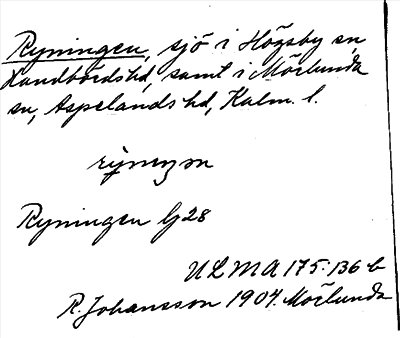 Ryningen, sjö i Högsby sn,
Handbörds hd, samt i Mörlunda
sn, Aspelands hd, Kalm. l.
Ryningen Gj 28
ULMA 175:136 b
R. Johansson 1904. Mörlunda